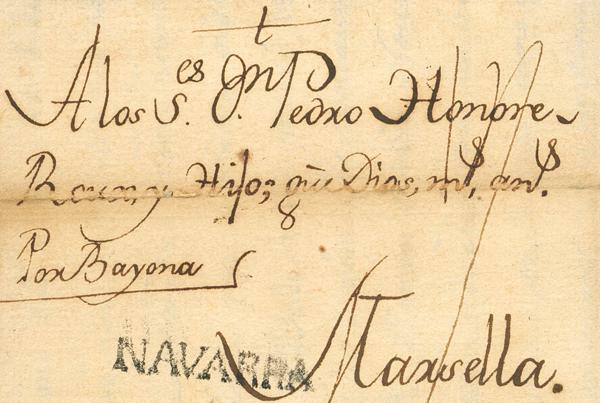 A los S.es Dn Pedro Honore
Roux, y Hijo; gue Dios, ms. as.
Por Bayona
NAVARRA Marsella.